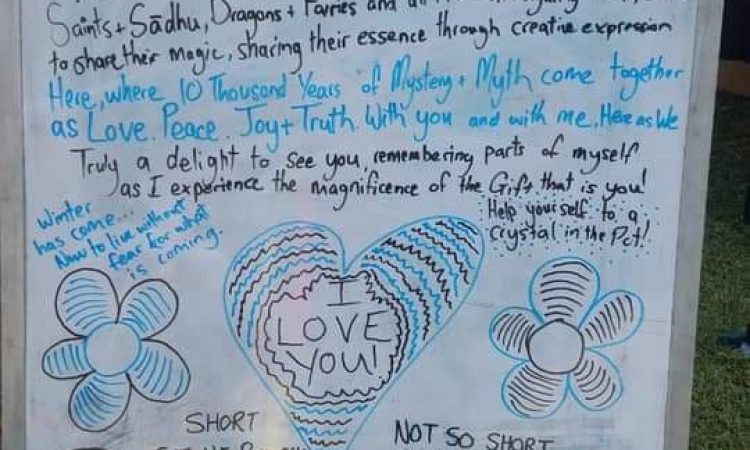 Saints + Sādhu, Dragons + Fairies and
to share their magic, sharing their essence through creative expression
Here, where 10 Thousand Years of Mystery + Myth come together
as Love. Peace. Joy + Truth With you and with me. Here as We
Truly a delight to see you, remembering parts of myself
as I experience the magnificence of the Gift that is you!
Winter
has come...
Now to live without
fear for what
is coming.
Help yourself to a
crystal in the Pot!
I
LOVE
YOU!
SHORT
NOT SO SHORT